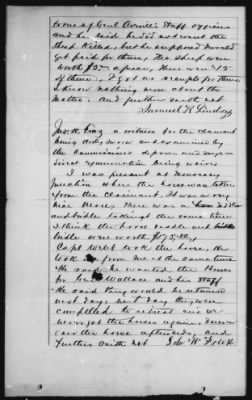 to one of Genl Averill's Staff officers
and he said he did not want the
Sheep killed, but he supposed I would
get paid for them, the sheep were
worth $5 apiece, there were 15
of them. I got no receipt for them
I know nothing more about the
matter. And further saith not
Samuel R Lindsay
Jos. W. Fox, a witness for the claimant
being duly sworn and examined by
the Commissioner deposes and says
direct examination being waived
I was present at Monocacy
Junction when the horse was taken
from the claimant, it was a very
nice Mare, there was a saddle
and bridle taken at the same time
I think the horse saddle and
bridle were worth $175.
Capt Webb took the horse, he
took from me at the same time
He said he wanted the Horses
for Genl Wallace and his staff
He said they would be returned
next day, next day they were
compelled to retreat and we
never got the horses again, I never
saw the horse afterwards, and
further saith not Jos W Fox